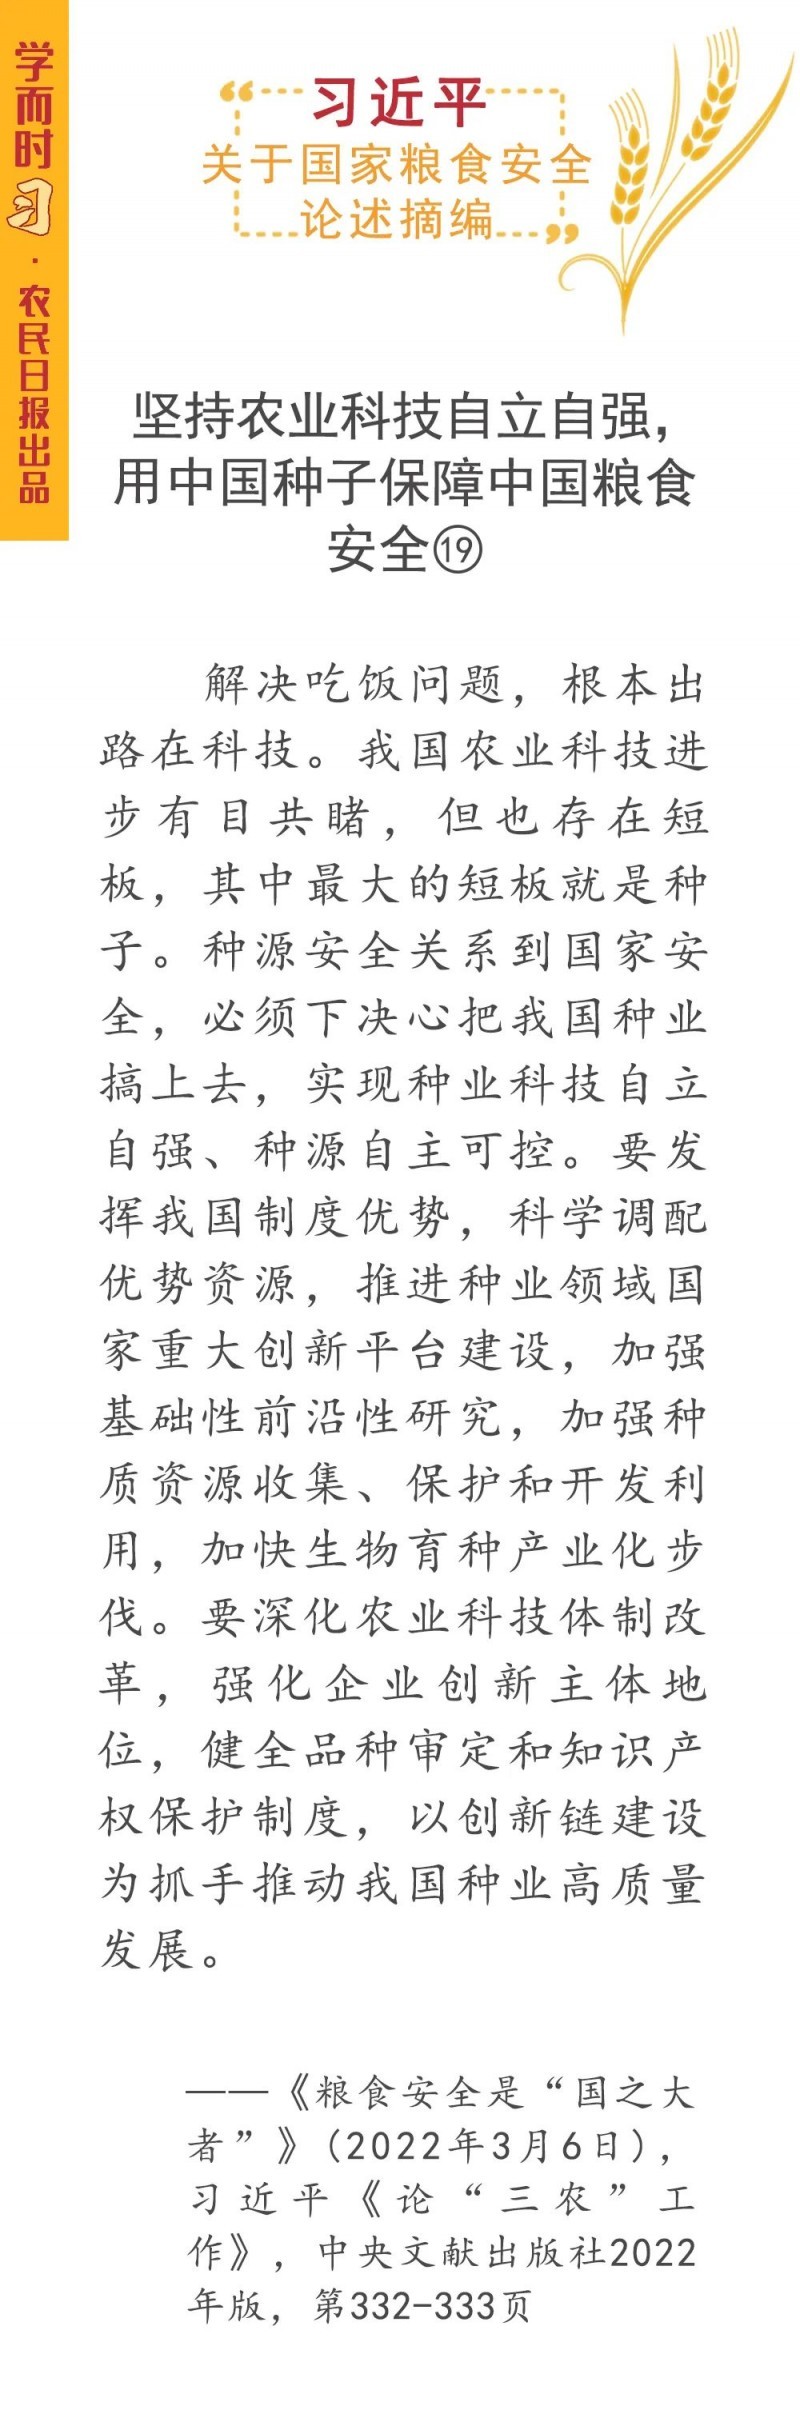 学而时习·农民日报出品
“习近平
关于国家粮食安全
论述摘编”
坚持农业科技自立自强，
用中国种子保障中国粮食
安全⑲
解决吃饭问题，根本出
路在科技。我国农业科技进
步有目共睹，但也存在短
板，其中最大的短板就是种
子。种源安全关系到国家安
全，必须下决心把我国种业
搞上去，实现种业科技自立
自强、种源自主可控。要发
挥我国制度优势，科学调配
优势资源，推进种业领域国
家重大创新平台建设，加强
基础性前沿性研究，加强种
质资源收集、保护和开发利
用，加快生物育种产业化步
伐。要深化农业科技体制改
革，强化企业创新主体地
位，健全品种审定和知识产
权保护制度，以创新链建设
为抓手推动我国种业高质量
发展。
——《粮食安全是“国之大
者”》（2022年3月6日），
习近平《论“三农”工
作》，中央文献出版社2022
年版，第332-333页